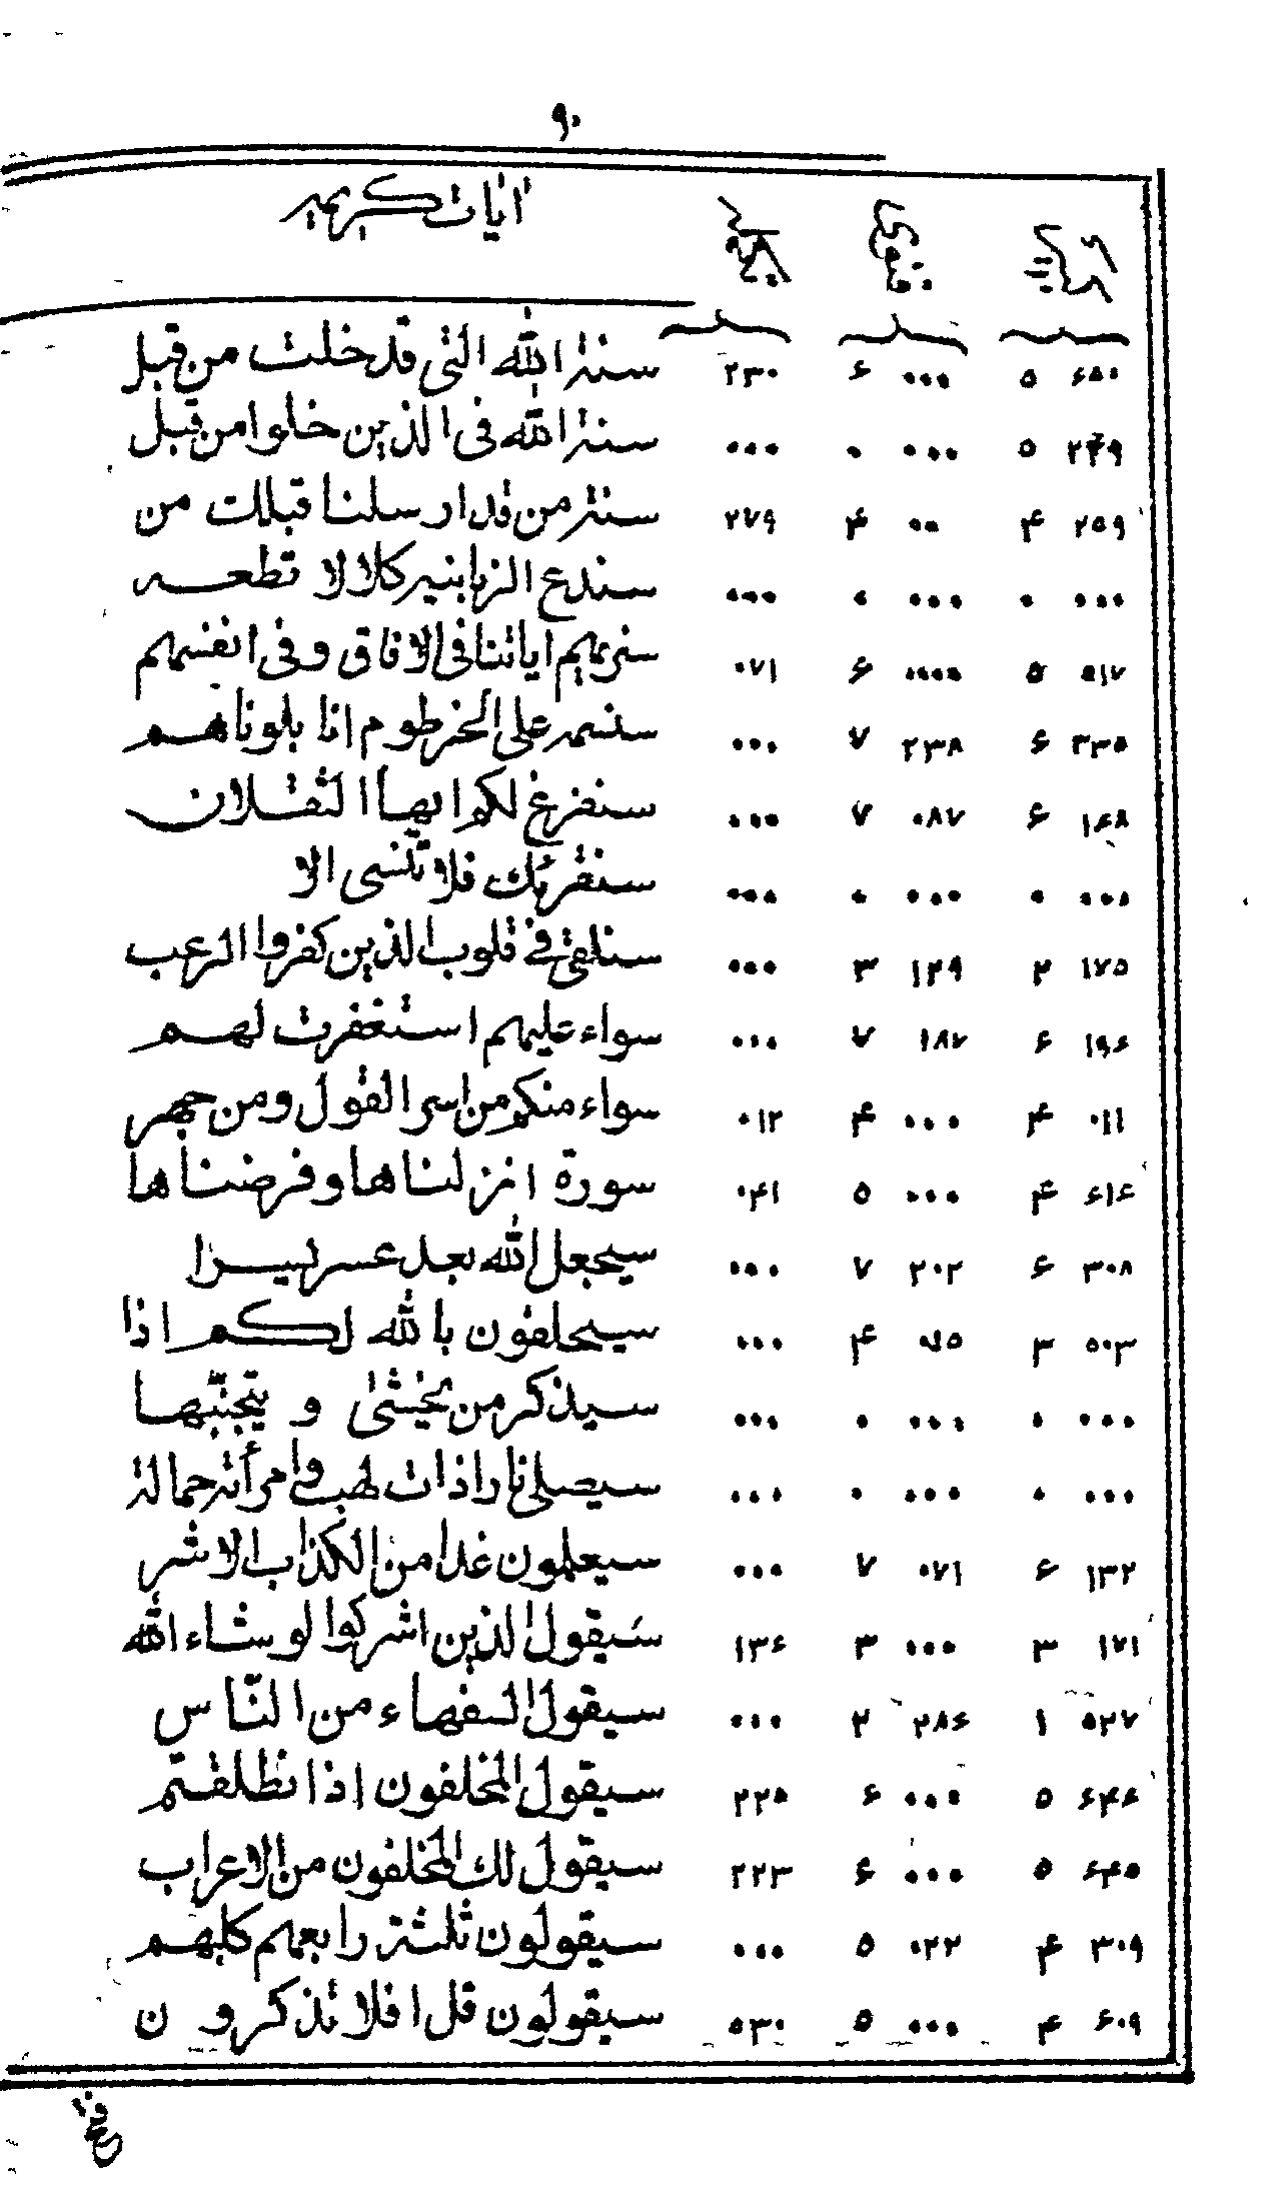 ۹۰
ایات کریمه
۶۵۰ ۵ ۰۰۰ ۶ ۲۳۰ سنة الله التی قد خلت من قبل
۲۴۹ ۵ ۰۰۰ ۰ ۰۰۰ سنة الله فی الذین خلوا من قبل
۲۵۹ ۴ ۰۰ ۴ ۲۷۹ سنة من قد ارسلنا قبلك من
۰۰۰ ۰ ۰۰۰ ۰ ۰۰۰ سندع الزبانیة کلا لا تطعه
۵۱۷ ۵ ۰۰۰۰ ۶ ۰۷۱ سنریهم ایاتنا فی الافاق و فی انفسهم
۳۳۵ ۶ ۲۳۸ ۷ ۰۰۰ سنسمه علی الخرطوم انا بلوناهم
۱۶۸ ۶ ۰۸۷ ۷ ۰۰۰ سنفرغ لکم ایها الثقلان
۰۰۰ ۰ ۰۰۰ ۰ ۰۰۰ سنقرئك فلا تنسی الا
۱۷۵ ۲ ۱۲۹ ۳ ۰۰۰ سنلقی فی قلوب الذین کفروا الرعب
۱۹۶ ۶ ۱۸۷ ۷ ۰۰۰ سواء علیهم استغفرت لهم
۰۱۱ ۴ ۰۰۰ ۴ ۰۱۲ سواء منکم من اسر القول و من جهر
۶۱۶ ۴ ۰۰۰ ۵ ۰۴۱ سورة انزلناها و فرضناها
۳۰۸ ۶ ۲۰۲ ۷ ۰۰۰ سیجعل الله بعد عسر یسرا
۵۰۳ ۳ ۴ ۰۰۰ سیحلفون بالله لکم اذا
۰۰۰ ۰ ۰۰۰ ۰ ۰۰۰ سیذکر من یخشی و یتجنبها
۰۰۰ ۰ ۰۰۰ ۰ ۰۰۰ سیصلی نارا ذات لهب و امرأته حمالة
۱۳۲ ۶ ۰۷۱ ۷ ۰۰۰ سیعلمون غدا من الکذاب الاشر
۱۷۱ ۳ ۰۰۰ ۳ ۱۳۶ سیقول الذین اشرکوا لو شاء الله
۵۲۷ ۱ ۲۸۶ ۲ ۰۰۰ سیقول السفهاء من النّاس
۶۴۶ ۵ ۰۰۰ ۶ ۲۲۵ سیقول المخلفون اذا نطلقتم
۶۴۵ ۵ ۰۰۰ ۶ ۲۲۳ سیقول لك المخلفون من الاعراب
۳۰۹ ۴ ۰۲۲ ۵ ۰۰۰ سیقولون ثلثة رابعهم کلبهم
۶۰۹ ۴ ۰۰۰ ۵ ۵۳۰ سیقولون قل افلا تذکرون